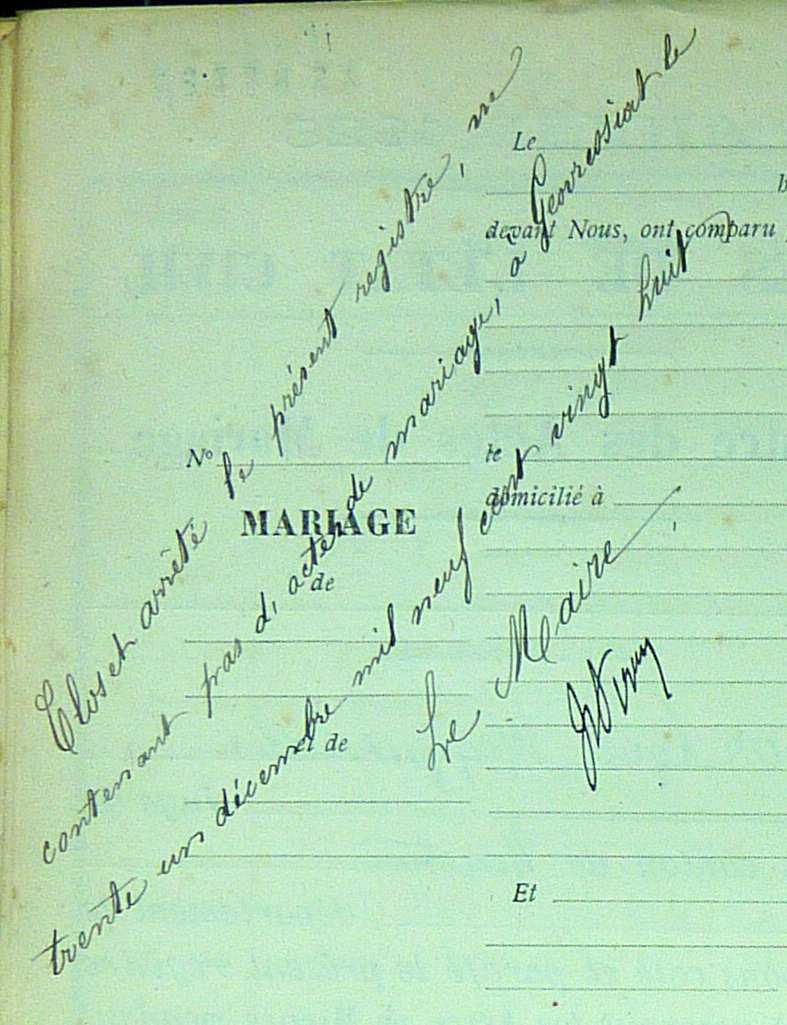 Le
devant Nous, ont comparu
No
MARIAGE
de
et de
le
domicilié à
Et
Clos et arrêté le présent registre, ne
contenant pas d'actes de mariage, à Geovreissiat le
trente un décembre mil neuf cent vingt huit
Le Maire,